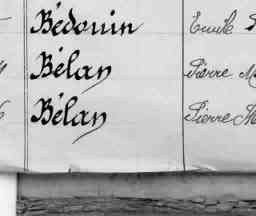 Bédouin Emile
Bélan Pierre M
Bélan Pierre M